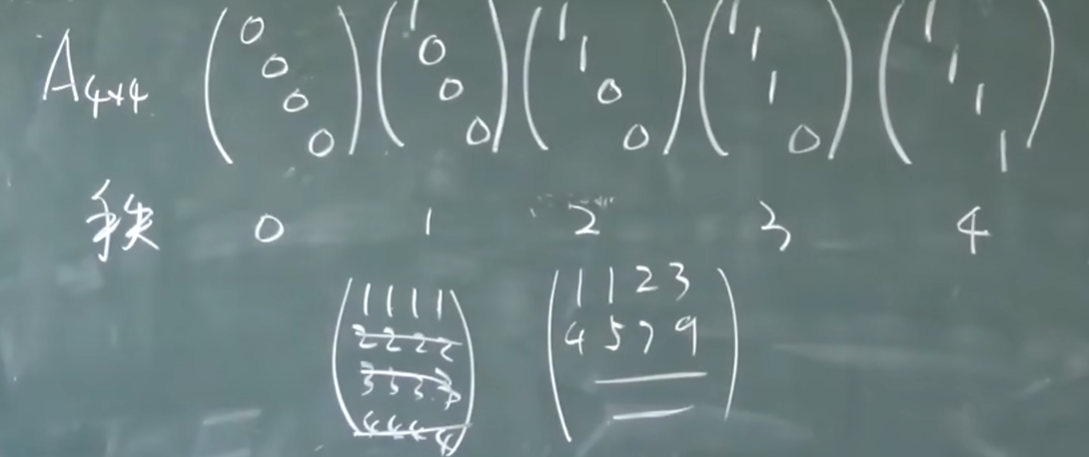 A4×4 (0 0 0 0) (1 0 0 0) (1 1 0 0) (1 1 1 0) (1 1 1 1)
秩 0 1 2 3 4
1 1 1 1
2 2 2 2
3 3 3 3
4 4 4 4
1 1 2 3
4 5 7 9